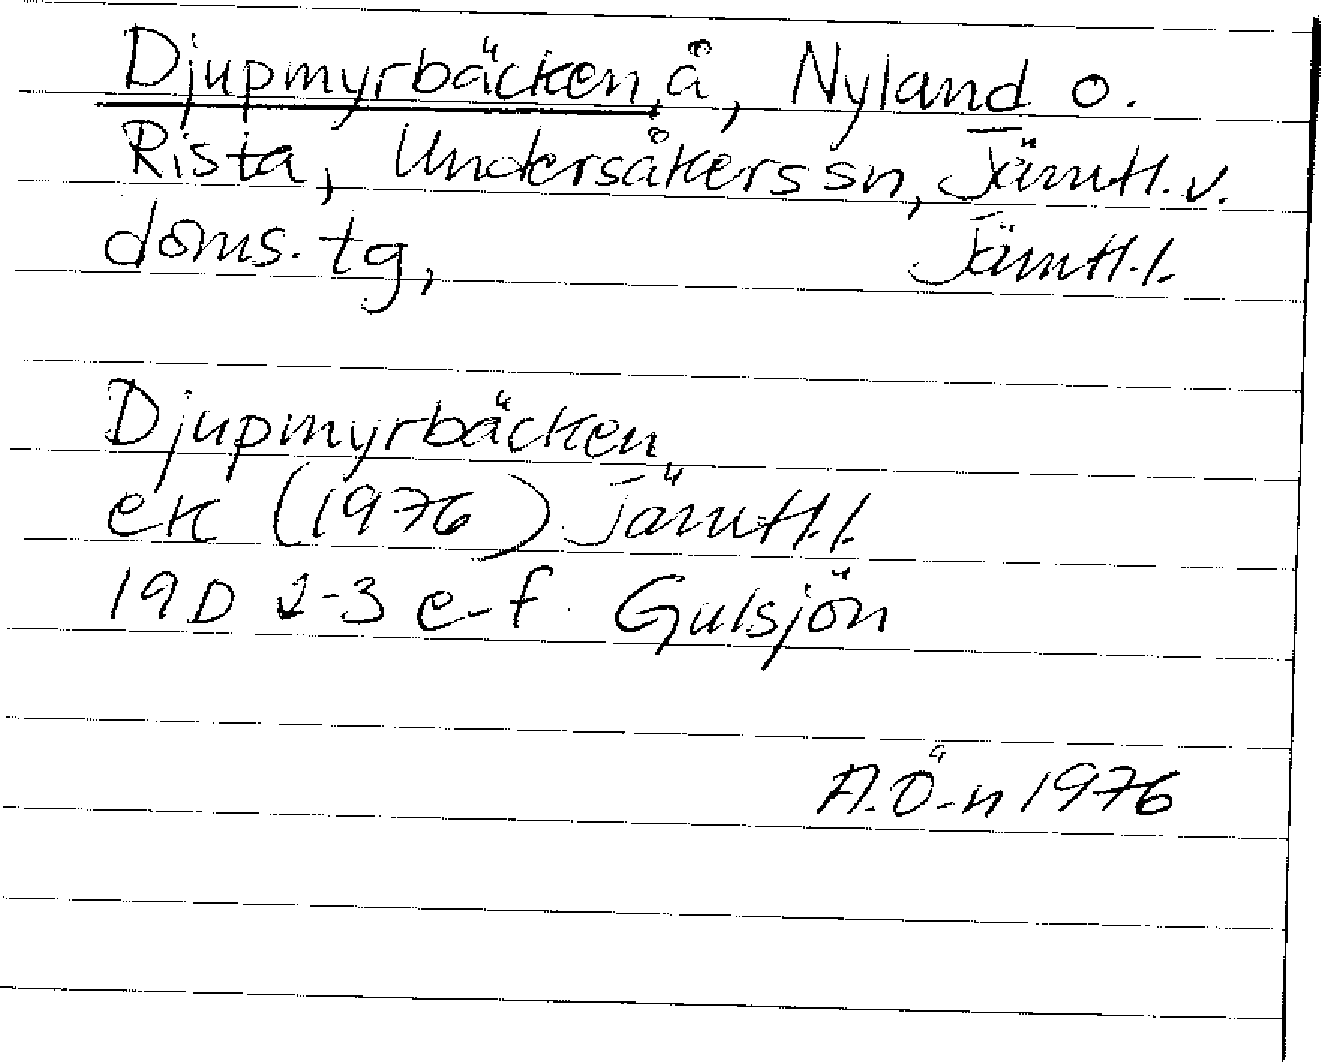 Djupmyrbäcken, å, Nyland o.
Rista, Undersåkers sn, Jämtl. v.
doms. tg, Jämtl. l.
Djupmyrbäcken
ek (1976) Jämtl. l.
19D 2-3 e-f. Gulsjön
A.Ö-n 1976